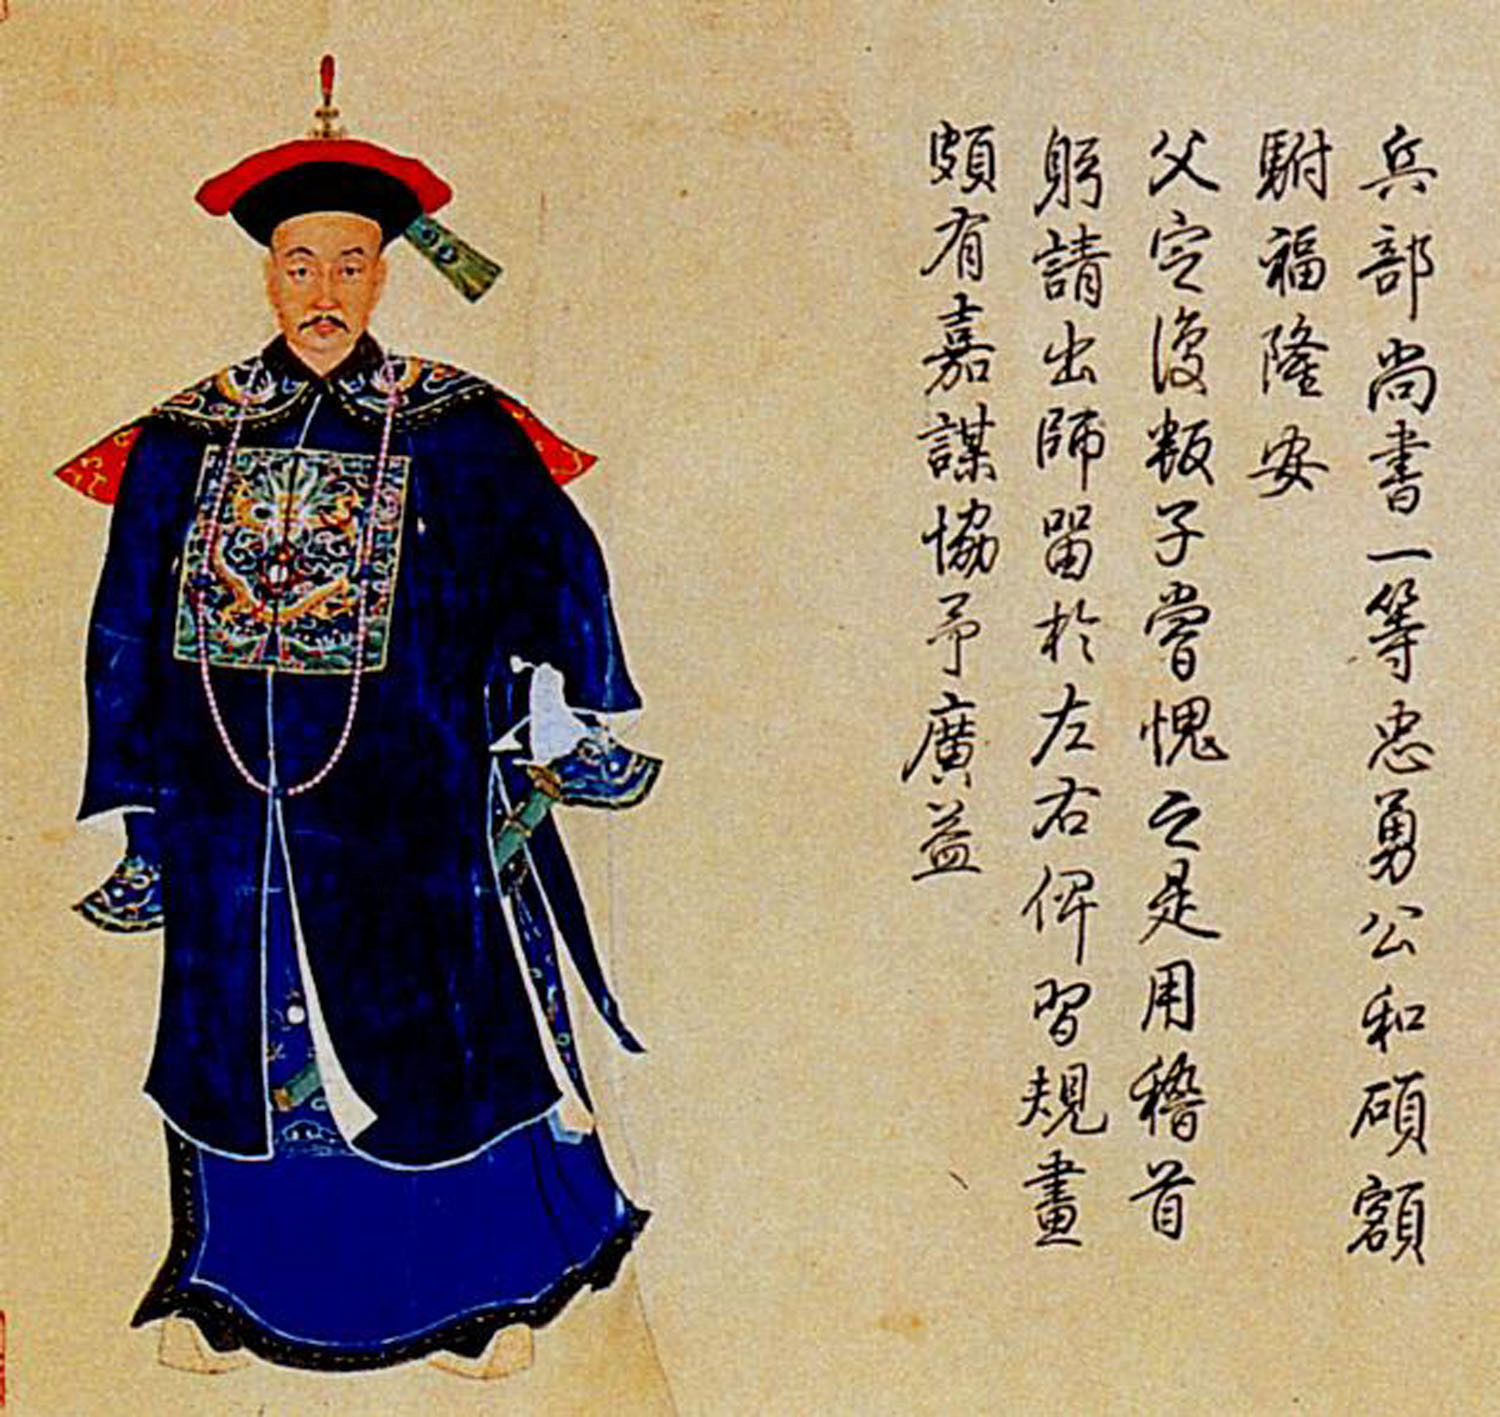 兵部尚書一等忠勇公和碩額
駙福隆安
父定復叛子嘗愧之是用稽首
躬請出師留於左右俾習規畫
頗有嘉謀恊予廣益